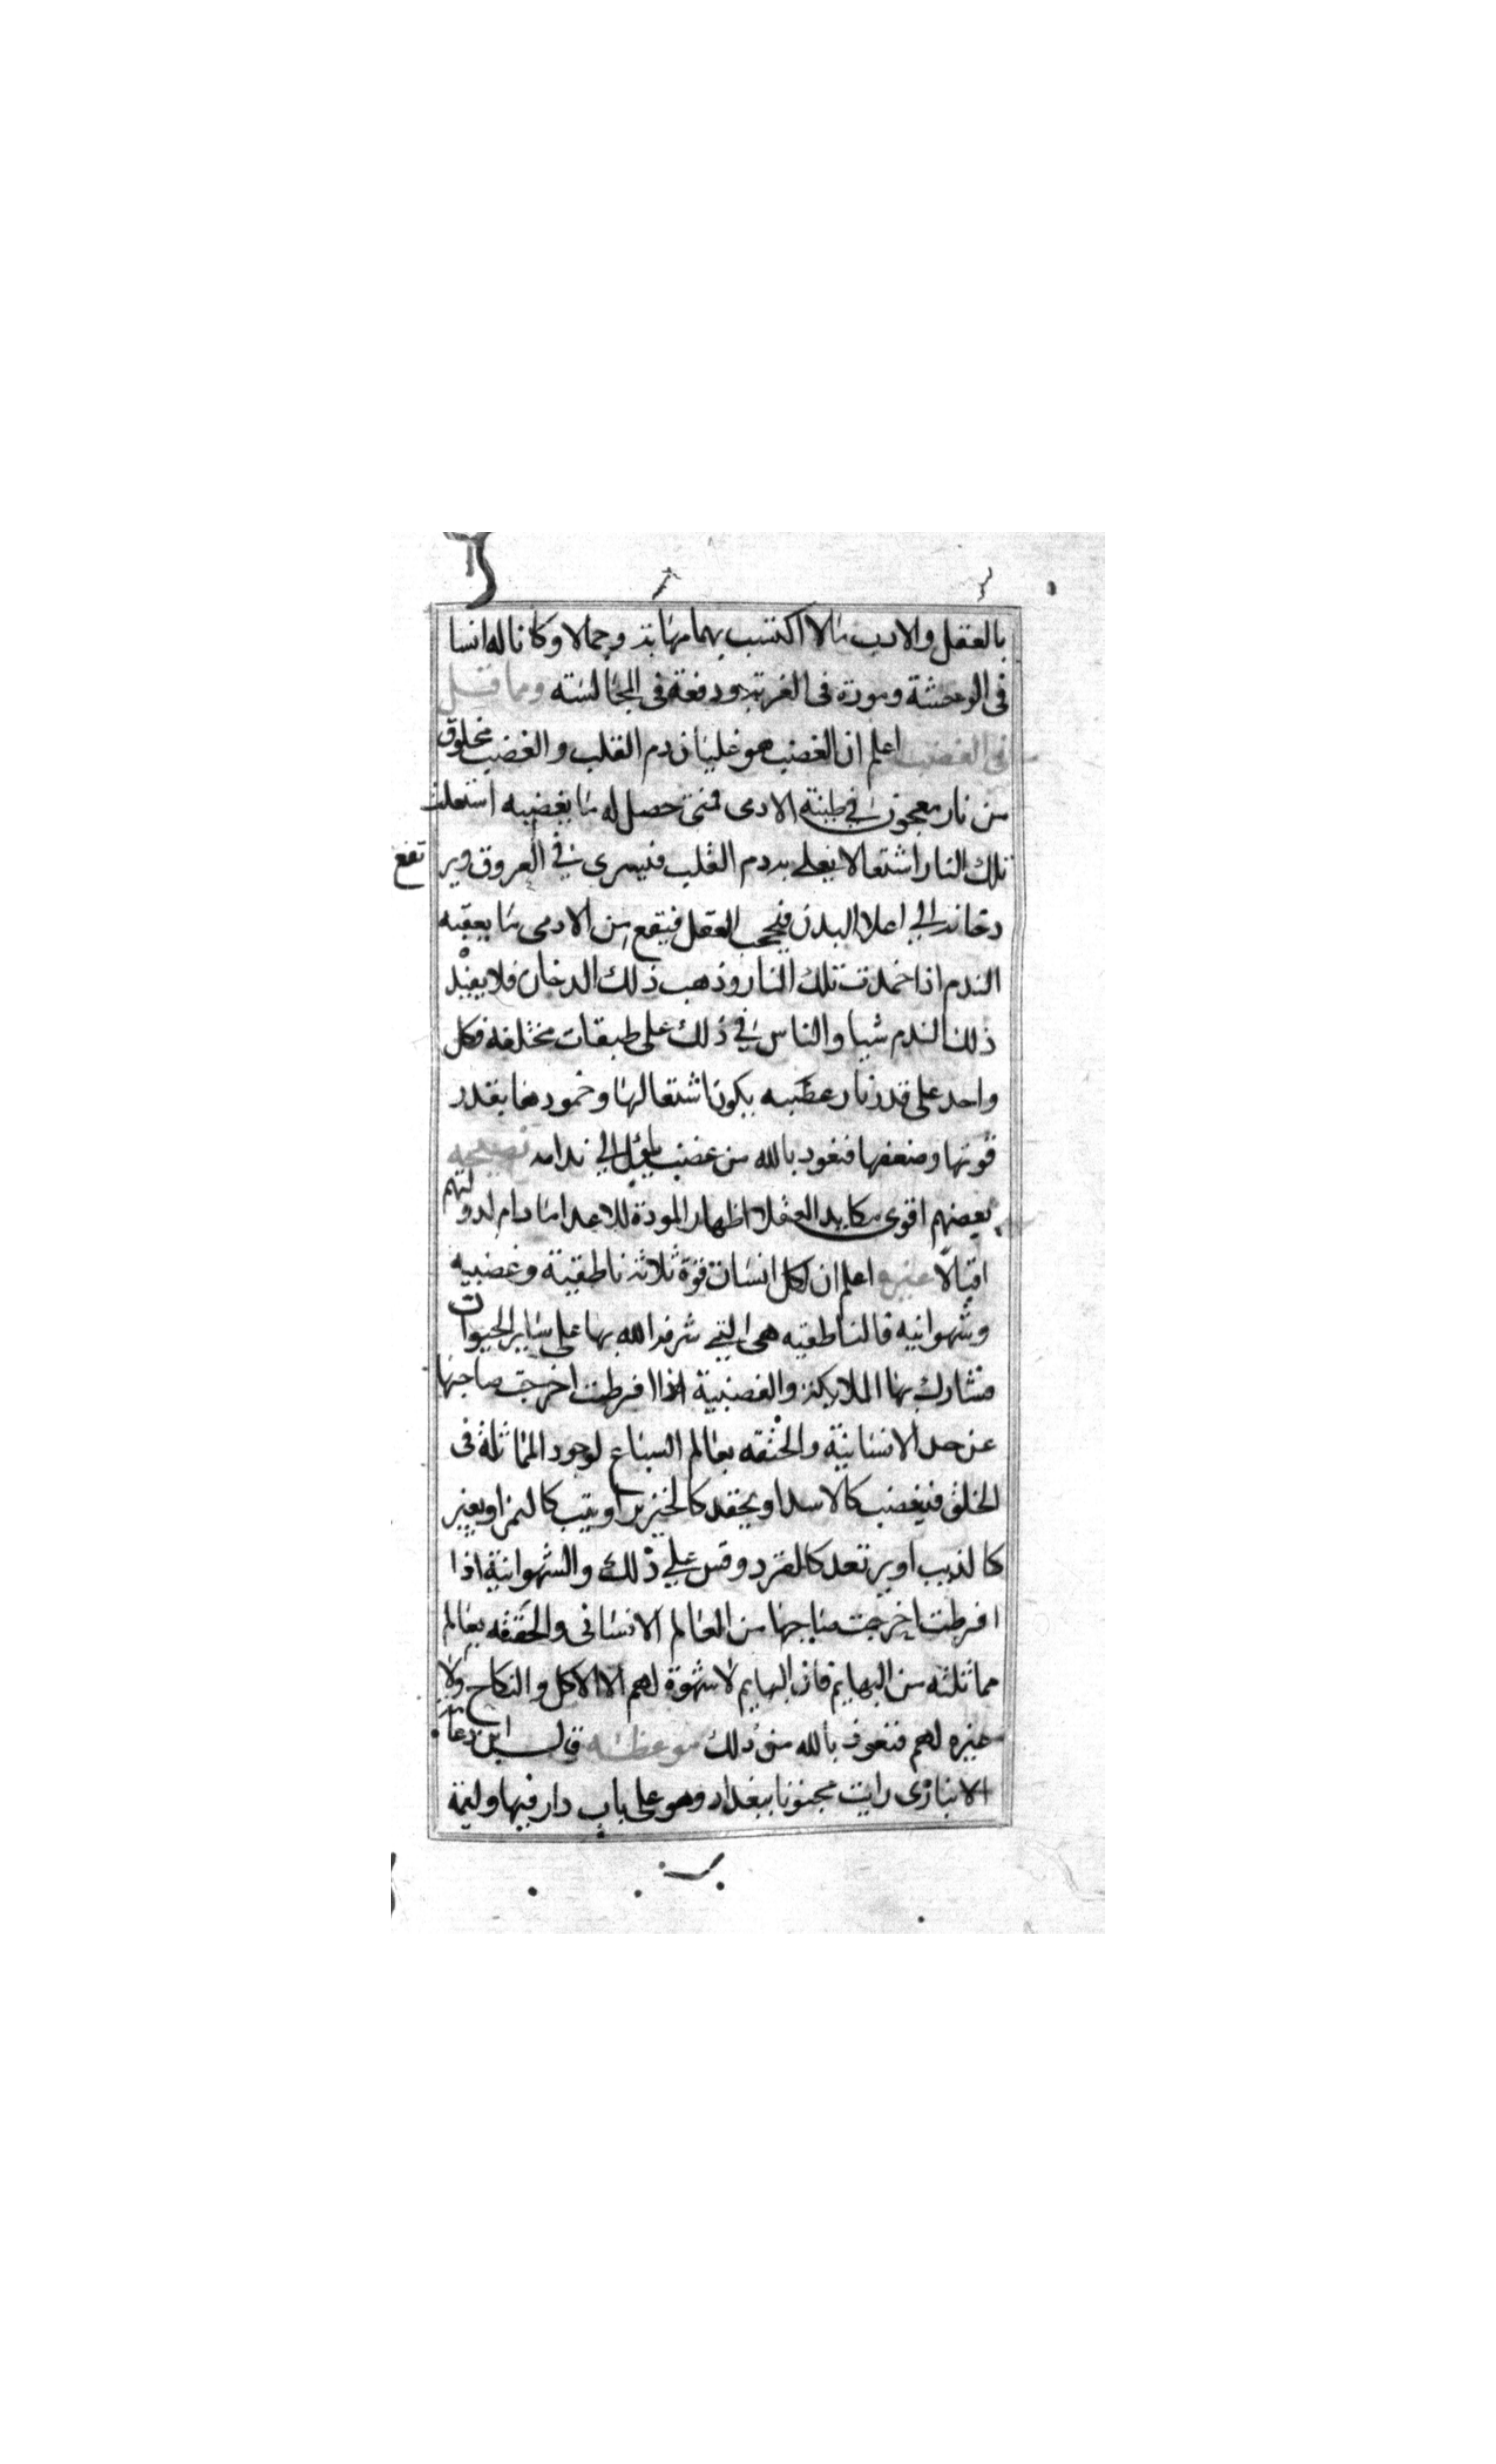 بالعقل والادب مالا اكتسب بهما مهابة وجمالا وكانا له انسا
فى الوحشة ومودة فى الغربة ورفعة فى المجالسته ومما قيل
فى الغضب اعلم ان الغضب هو غليان دم القلب والغضب مخلوق
من نار معجون فى طينة الادمى فمتى حصل له ما يغضبه اشتعلت
تلك النار اشتعالا يغلى به دم القلب فيسرى فى العروق وير تفع
دخانه الى اعلا البدن فيحجب العقل فيقع من الادمى ما يعقبه
الندم اذا خمدت تلك النار وذهب ذلك الدخان فلا يفيد
ذلك الندم شيا والناس فى ذلك على طبقات مختلفه فكل
واحد على قدر نار غضبه يكون اشتعالها وخمودها بقدر
قوتها وضعفها فنعوذ بالله من غضب يئل الى ندامه نصيحه
بعضهم اقوى مكايد العقلا اظهار المودة للاعدا ما دام لدولتهم
اقبالا غيره اعلم ان لكل انسان قوة ثلاثه ناطقية وغضبيه
وشهوانيه فالناطقيه هى التى شرفه الله بها على ساير الحيوات
فشارك بها الملايكة والغضبية اذا افرطت اخرجت صاحبها
عن حد الانسانية والحقته بعالم السباع لوجود المماثلة فى
الخلق فيغضب كالاسد او يحقد كالخنزير او يثب كالنمر او يغير
كالذيب او يرتعد كالقرد وقس على ذلك والشهوانية اذا
افرطت اخرجت صاحبها من العالم الانسانى والحقته بعالم
مماثلثه من البهايم فان البهايم لا شهوة لهم الا الاكل والنكاح ولا
غيره لهم فنعوذ بالله من ذلك موعظه قال ابن
الانبارى رايت مجنونا ببغداد وهو على باب دار فيها وليمة